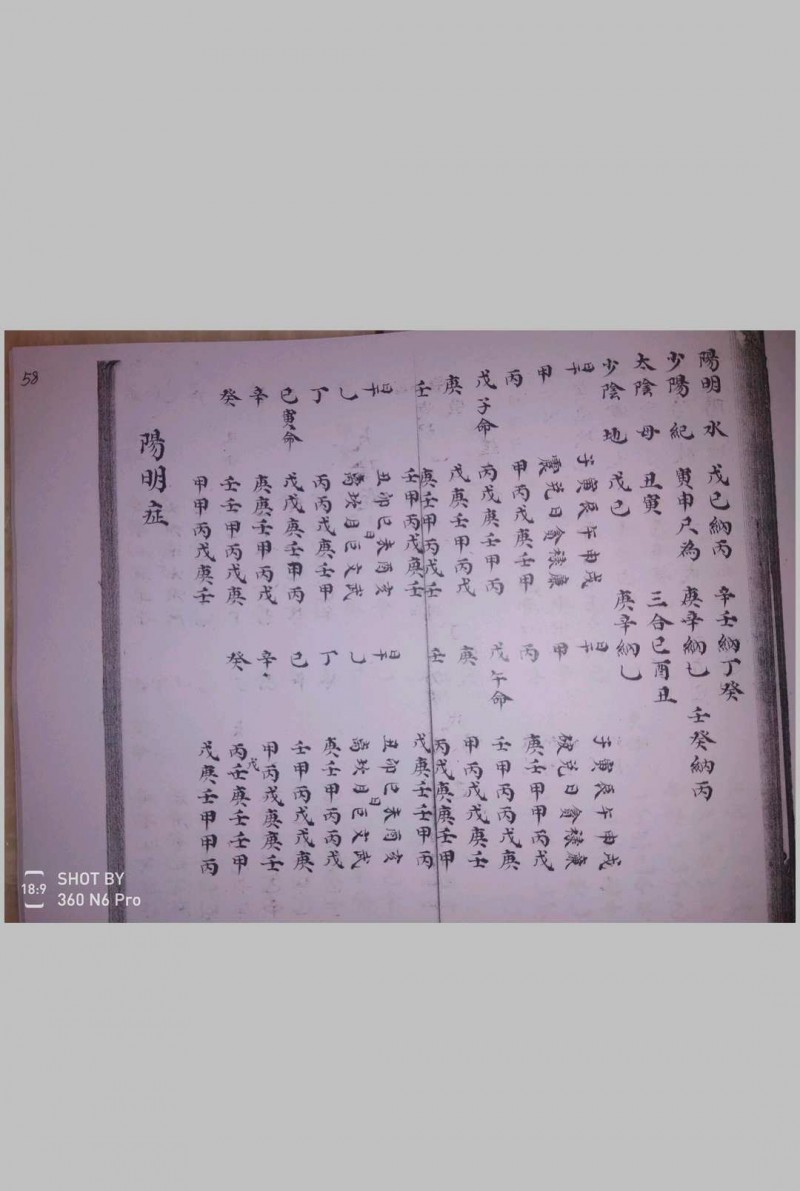 陽明水 戊己納丙 辛壬納丁癸
少陽紀 寅申尺為 庚辛納乜 壬癸納丙
太陰母 丑寅 三合巳酉丑
少陰地 戊己 庚辛納乚
日干 子寅辰午申戌 日干 子寅辰午申戌
甲 震兑日貪禄廉 甲 破兑日貪禄廉
丙 甲丙戊庚壬甲 丙 庚壬甲甲丙戊
戊子命 丙戊庚壬甲丙 戊午命 壬甲丙丙戊庚
庚 戊庚壬甲丙戊 庚 甲丙戊戊庚壬
庚壬甲丙戊壬 丙戊庚庚壬甲
壬 壬甲丙戊庚壬 壬 戊庚壬壬甲丙
日干 丑卯巳未酉亥 日干 丑卯巳未酉亥
乙 离坎月日巨文武 乙 离坎月日巨文武
丁 丙丙戊庚壬甲 丁 庚壬甲丙丙戊
己寅命 戊戊庚壬甲丙 己 壬甲丙戊戊庚
辛 庚庚壬甲丙戊 辛 甲丙戊庚庚壬
癸 壬壬甲丙戊庚 癸 丙戊壬庚壬壬甲
甲甲丙戊庚壬 戊庚壬甲甲丙
陽明症
58
18:9 SHOT BY
360 N6 Pro